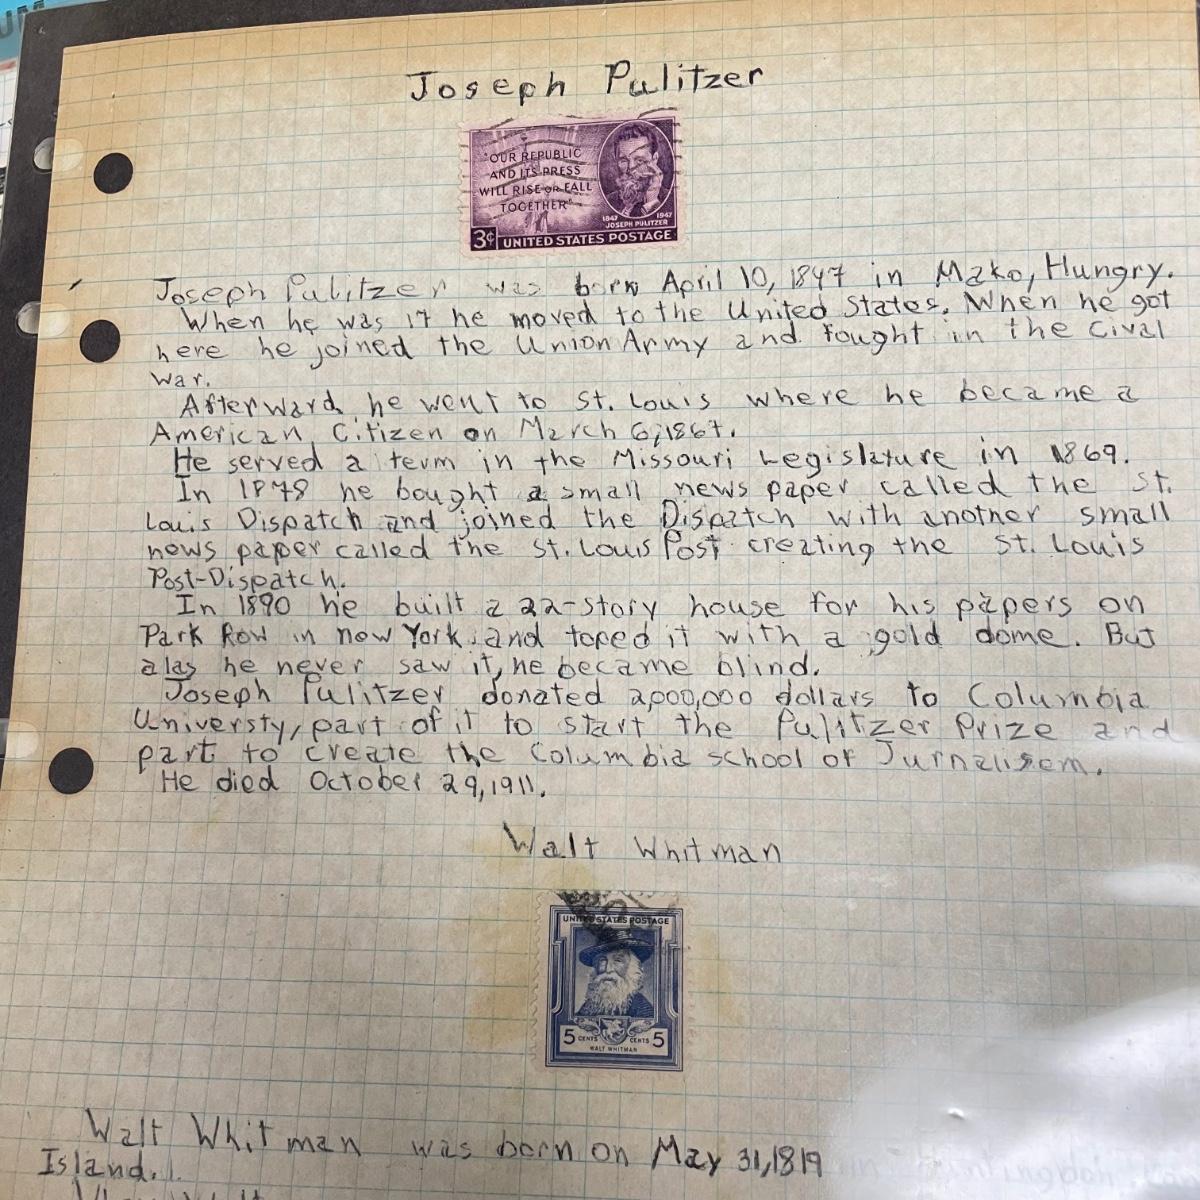 Joseph Pulitzer
"OUR REPUBLIC
AND ITS PRESS
WILL RISE OR FALL
TOGETHER"
1847 1947
JOSEPH PULITZER
3¢ UNITED STATES POSTAGE
Joseph Pulitzer was born April 10, 1847 in Mako, Hungry.
When he was 17 he moved to the United States. When he got
here he joined the Union Army and fought in the Cival
War.
Afterward he went to St. Louis where he became a
American Citizen on March 6, 1867.
He served a term in the Missouri Legislature in 1869.
In 1878 he bought a small news paper called the St.
Louis Dispatch and joined the Dispatch with another small
news paper called the St. Louis Post creating the St. Louis
Post-Dispatch.
In 1890 he built a 22-story house for his papers on
Park Row in new York and toped it with a gold dome. But
alas he never saw it, he became blind.
Joseph Pulitzer donated 2,000,000 dollars to Columbia
Universty, part of it to start the Pulitzer Prize and
part to create the Columbia school of Jurnalisem.
He died October 29, 1911.
Walt Whitman
UNITED STATES POSTAGE
5 CENTS CENTS 5
WALT WHITMAN
Walt Whitman was born on May 31, 1819
Island.